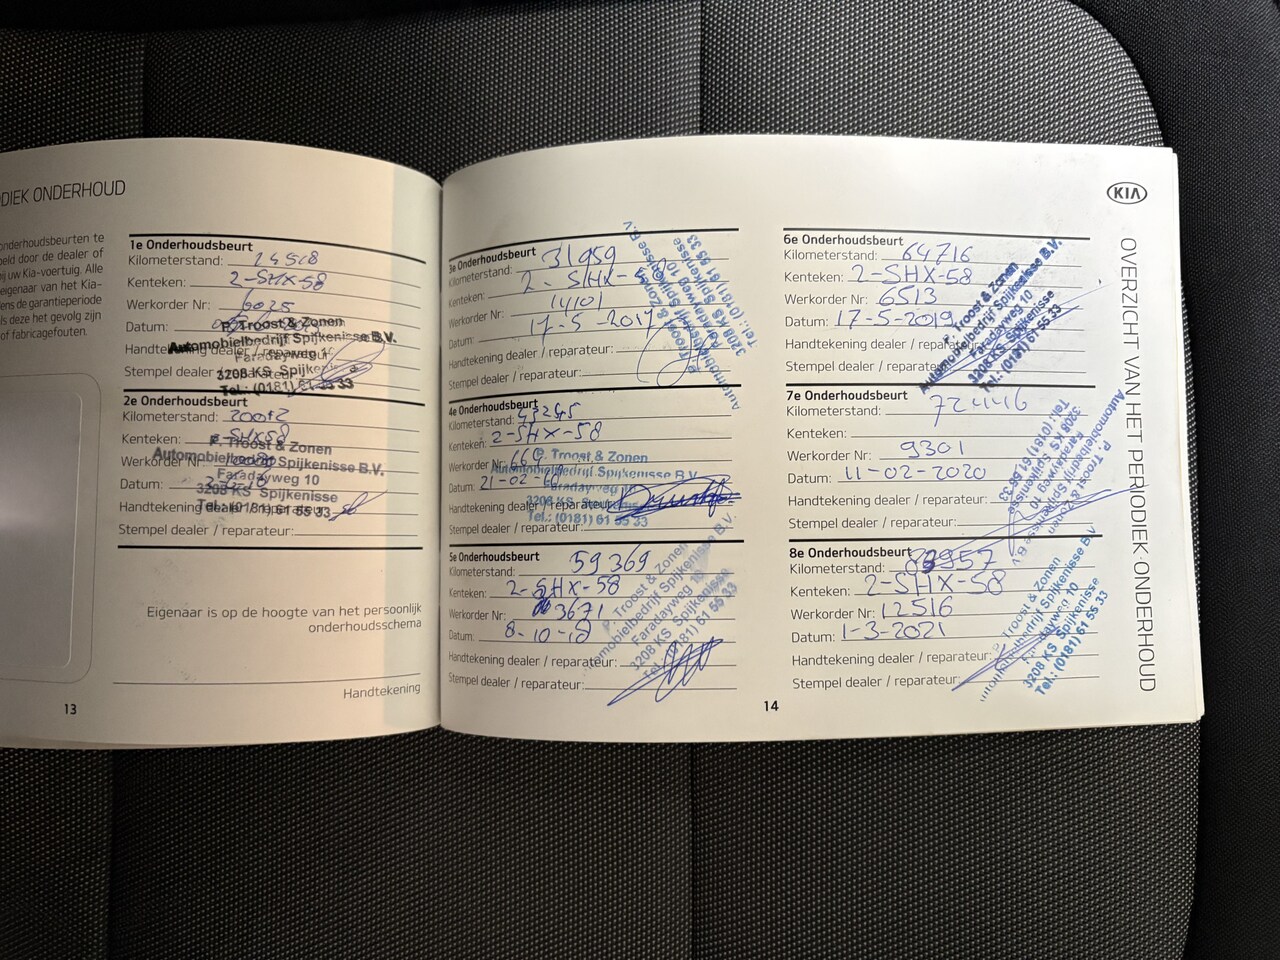 DIEK ONDERHOUD
onderhoudsbeurten te
eld door de dealer of
ij uw Kia-voertuig. Alle
eigenaar van het Kia-
ens de garantieperiode
ls deze het gevolg zijn
of fabricagefouten.
1e Onderhoudsbeurt
Kilometerstand:
Kenteken: 2-SHX-58
Werkorder Nr:
Datum:
Handtekening dealer / reparateur:
Stempel dealer / reparateur:
P. Troost & Zonen
Automobielbedrijf Spijkenisse B.V.
Faradayweg 10
3208 KS Spijkenisse
Tel.: (0181) 61 55 33
2e Onderhoudsbeurt
Kilometerstand:
Kenteken: 2-SHX58
Werkorder Nr:
Datum:
Handtekening dealer / reparateur:
Stempel dealer / reparateur:
P. Troost & Zonen
Automobielbedrijf Spijkenisse B.V.
Faradayweg 10
3208 KS Spijkenisse
Tel.: (0181) 61 55 33
Eigenaar is op de hoogte van het persoonlijk
onderhoudsschema
Handtekening
13
3e Onderhoudsbeurt
Kilometerstand: 31959
Kenteken: 2-SHX-58
Werkorder Nr: 14101
Datum: 17-5-2017
Handtekening dealer / reparateur:
Stempel dealer / reparateur:
P. Troost & Zonen
Automobielbedrijf Spijkenisse B.V.
Faradayweg 10
3208 KS Spijkenisse
Tel.: (0181) 61 55 33
4e Onderhoudsbeurt
Kilometerstand: 45245
Kenteken: 2-SHX-58
Werkorder Nr:
Datum: 21-02-
Handtekening dealer / reparateur:
Stempel dealer / reparateur:
P. Troost & Zonen
Automobielbedrijf Spijkenisse B.V.
Faradayweg 10
3208 KS Spijkenisse
Tel.: (0181) 61 55 33
5e Onderhoudsbeurt
Kilometerstand: 59369
Kenteken: 2-SHX-58
Werkorder Nr: 3671
Datum: 8-10-18
Handtekening dealer / reparateur:
Stempel dealer / reparateur:
P. Troost & Zonen
Automobielbedrijf Spijkenisse B.V.
Faradayweg 10
3208 KS Spijkenisse
Tel.: (0181) 61 55 33
14
6e Onderhoudsbeurt
Kilometerstand: 64716
Kenteken: 2-SHX-58
Werkorder Nr: 6513
Datum: 17-5-2019
Handtekening dealer / reparateur:
Stempel dealer / reparateur:
P. Troost & Zonen
Automobielbedrijf Spijkenisse B.V.
Faradayweg 10
3208 KS Spijkenisse
Tel.: (0181) 61 55 33
7e Onderhoudsbeurt
Kilometerstand: 72446
Kenteken:
Werkorder Nr: 9301
Datum: 11-02-2020
Handtekening dealer / reparateur:
Stempel dealer / reparateur:
P. Troost & Zonen
Automobielbedrijf Spijkenisse B.V.
Faradayweg 10
3208 KS Spijkenisse
Tel.: (0181) 61 55 33
8e Onderhoudsbeurt
Kilometerstand:
Kenteken: 2-SHX-58
Werkorder Nr: 12516
Datum: 1-3-2021
Handtekening dealer / reparateur:
Stempel dealer / reparateur:
P. Troost & Zonen
Automobielbedrijf Spijkenisse B.V.
Faradayweg 10
3208 KS Spijkenisse
Tel.: (0181) 61 55 33
KIA
OVERZICHT VAN HET PERIODIEK ONDERHOUD